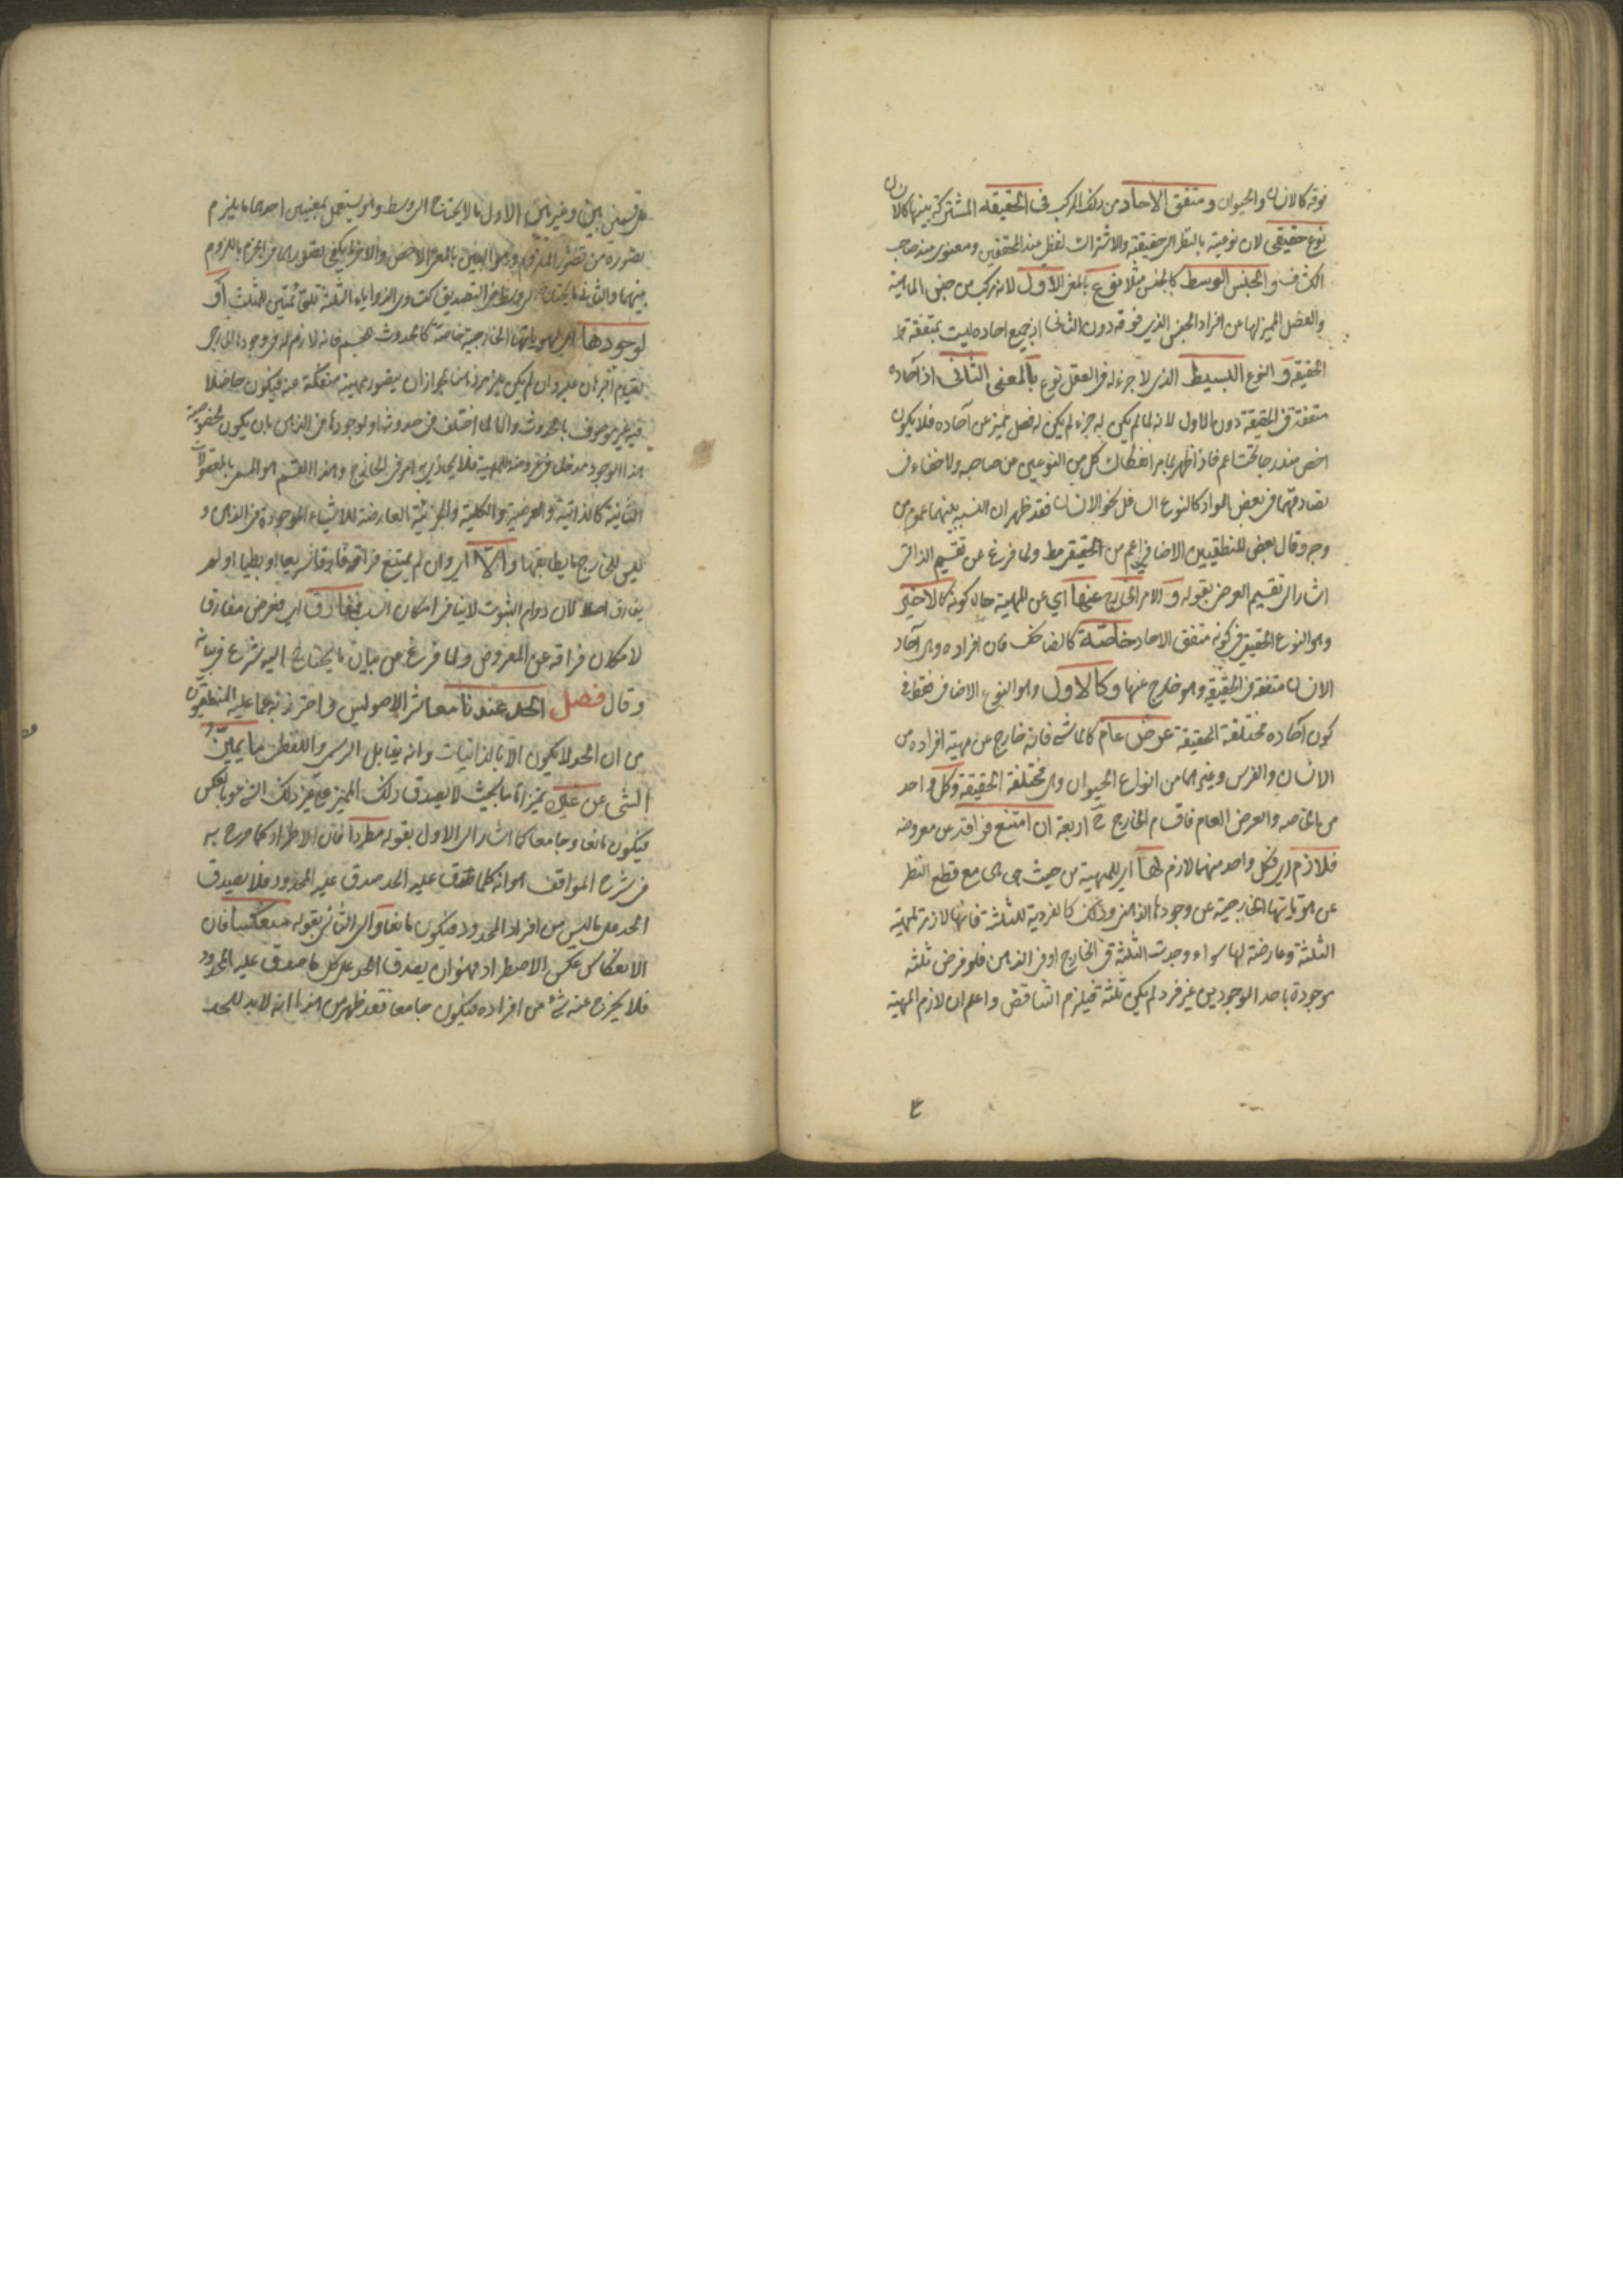 فوقه كالانسان والحيوان ومتفق الاحاد من ذلك المركب فى الحقيقه المشتركة بينها كالانسان
نوع حقيقى لان نوعيته بالنظر الى حقيقته والاشتراك لفظى عند المحققين ومعنوى عند صاحب
الكشف والجنس الوسط كالجنس مثلا نوع بالمعنى الاول لانه مركب من جنس الماهية
والفصل المميز لها من افراد الجنس الذى فوقه دون الثانى اذ جميع احاده ليست بمتفقة
الحقيقة والنوع البسيط الذى لا جزء له فى العقل نوع بالمعنى الثانى اذ آحاده
متفقة فى الحقيقة دون الاول لانه لما لم يكن له جزء لم يكن له فصل تميز عن آحاده فلا يكون
اخص مندرجا تحت اعم فاذا ظهر بما مر انفكاك كل من النوعين عن صاحبه ولا خفاء فى
تصادقهما فى بعض المواد كالنوع السافل نحو الانسان فقد ظهر ان النسبه بينهما عموم من
وجه وقال بعض المنطقيين الاضافى اعم من الحقيقى مط ولما فرغ عن تقسيم الذاتى
اشار الى تقسيم العرضى بقوله و الامر الخارج عنها اى عن المهية حال كونه كالاخير
وهو النوع الحقيقى فى كونه متفق الاحاد خاصة كالضاحك فان افراده وهى آحاد
الانسان متفقة فى الحقيقة وهو خارج عنها وكالاول وهو النوع الاضافى فقط فى
كون آحاده مختلفة الحقيقة عرض عام كالماشى فانه خارج عن مهية افراده من
الانسان والفرس وغيرهما من انواع الحيوان وهى مختلفة الحقيقة وكل واحد
من الخاصه والعرض العام فاقسام الخارج ح اربعة ان امتنع فراقه عن معروضه
فلازم اى فكل واحد منهما لازم لها اى للمهية من حيث هى هى مع قطع النظر
عن هوياتها الخارجية عن وجودها الذهنى وذلك كالفردية للثلثة فانها لازمة لمهية
الثلثة وعارضة لها سواء وجدت الثلثة فى الخارج او فى الذهن فلو فرض ثلثه
موجودة باحد الوجودين غير فرد لم يكن ثلثة فيلزم التناقض واعلم ان لازم المهية
على قسمين بين وغير بين الاول ما لا يحتاج الى وسط وهو يستعمل بمعنيين احدهما ما يلزم
تصوره من تصور الملزوم وهو البين بالمعنى الاخص والاخر ما يكفى تصورهما فى الجزم باللزوم
بينهما والثانى ما يحتاج الى وسط فى التصديق كتساوى الزوايا الثلثة لقائمتين للمثلث او
لوجودها اى لهوياتها الخارجية خاصة كالحدوث للجسم فانه لازم له فى وجوده الخارجى
فيه غير موصوف بالحدوث
هذا الوجود مدخل فى عروضه للمهية فلا يحاذى به امر فى الخارج وهذا القسم هو المسمى بالمعقولات
الثانية كالذاتية والعرضية والكلية والجزئية العارضة للاشياء الموجودة فى الذهن و
ليس للخارج ما يطابقها والا اى وان لم يمتنع فراقه فارقا سريعا او بطيا او لم
يفارق اصلا لان دوام الثبوت لا ينافى امكان السلب مفارق اى فعرض مفارق
لامكان فراقه عن المعروض ولما فرغ عن بيان ما يحتاج اليه شرع فى بيانه
وقال فصل الحد عندنا معاشر الاصوليين واحترز به عما عليه المنطقيون
من ان الحد لا يكون الا بالذاتيات وانه يقابل الرسمى واللفظى ما يميز
الشى عن غيره تميزا تاما بحيث لا يصدق ذلك المميز على غير ذلك الشى ولا بالعكس
فيكون مانعا وجامعا كما اشار الى الاول بقوله مطردا فان الاطراد كما صرح به
فى شرح المواقف هو انه كلما صدق عليه الحد صدق عليه المحدود فلا يصدق
الحد على ما ليس من افراد المحدود فيكون مانعا والى الثانى بقوله منعكسا فان
الانعكاس عكس الاضطراد فهو ان يصدق الحد على كل ما صدق عليه المحدود
فلا يخرج عنه شئ من افراده فيكون جامعا فقد ظهر من هذا انه لا بد للحد